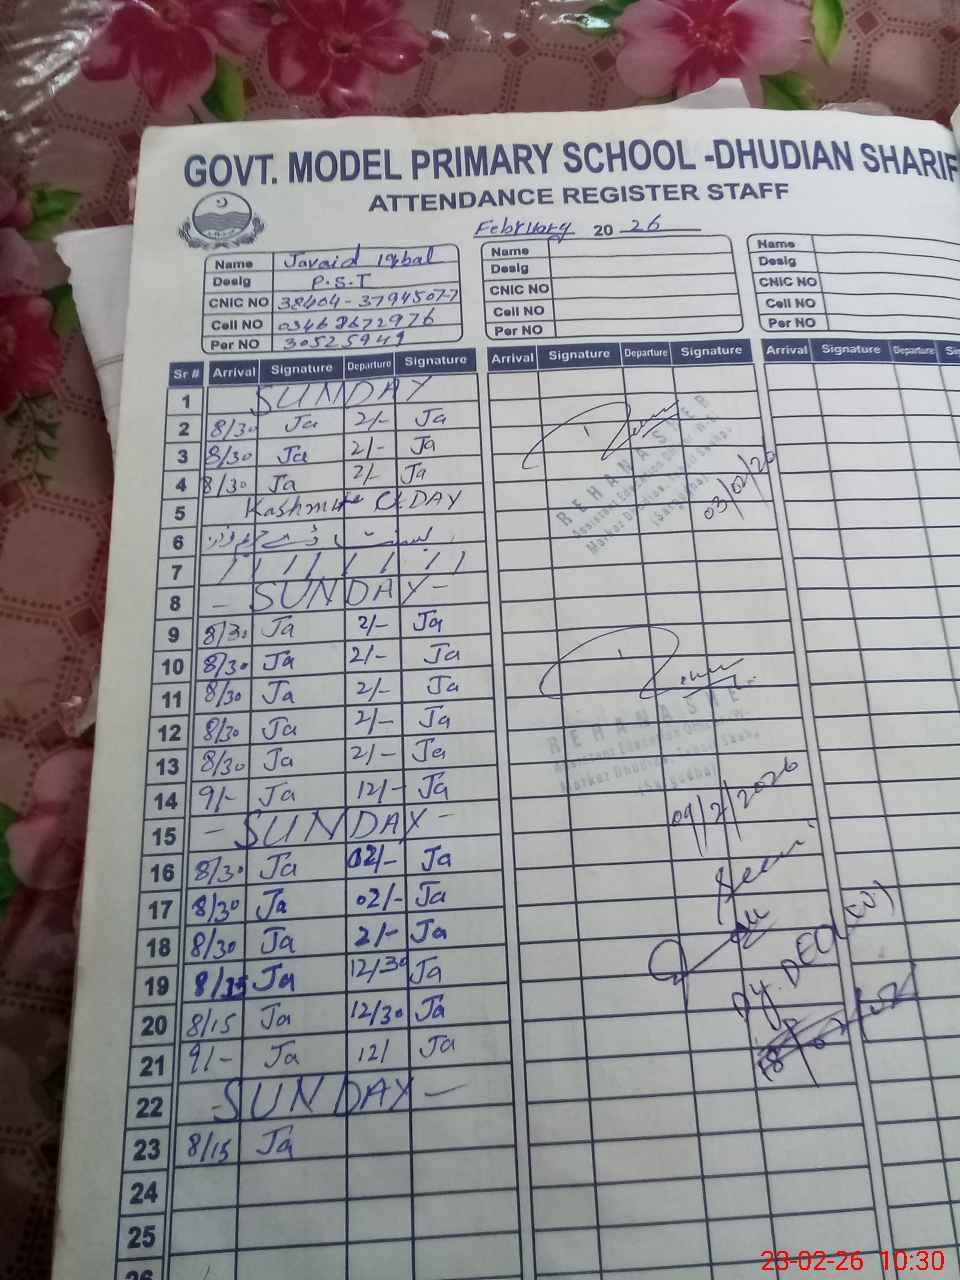 GOVT. MODEL PRIMARY SCHOOL -DHUDIAN SHARIF
ATTENDANCE REGISTER STAFF
February 2026
Name Javaid Iqbal
Desig P.S.T
CNIC NO 38404-3794507-7
Cell NO 03468672976
Per NO 30525941
Name
Desig
CNIC NO
Cell NO
Per NO
Name
Desig
CNIC NO
Cell NO
Per NO
Sr # Arrival Signature Departure Signature Arrival Signature Departure Signature Arrival Signature Departure
1 SUNDAY
2 8/30 Ja 2/- Ja
3 8/30 Ja 2/- Ja
4 8/30 Ja 2/- Ja
5 Kashmire DAY
6
7
8 - SUNDAY -
9 8/30 Ja 2/- Ja
10 8/30 Ja 2/- Ja
11 8/30 Ja 2/- Ja
12 8/30 Ja 2/- Ja
13 8/30 Ja 2/- Ja
14 9/- Ja 12/- Ja
15 - SUNDAY -
16 8/30 Ja 02/- Ja
17 8/30 Ja 02/- Ja
18 8/30 Ja 2/- Ja
19 8/15 Ja 12/30 Ja
20 8/15 Ja 12/30 Ja
21 9/- Ja 12/ Ja
22 - SUNDAY -
23 8/15 Ja
24
25
26
REHANA
Assistant Education Officer
Markaz Dhudian,
(Sargodha)
03/02/20
REHANA
Assistant Education Officer
Markaz Dhudian,
(Sargodha)
09/2/2026
Dy. DEO (W)
23-02-26 10:30